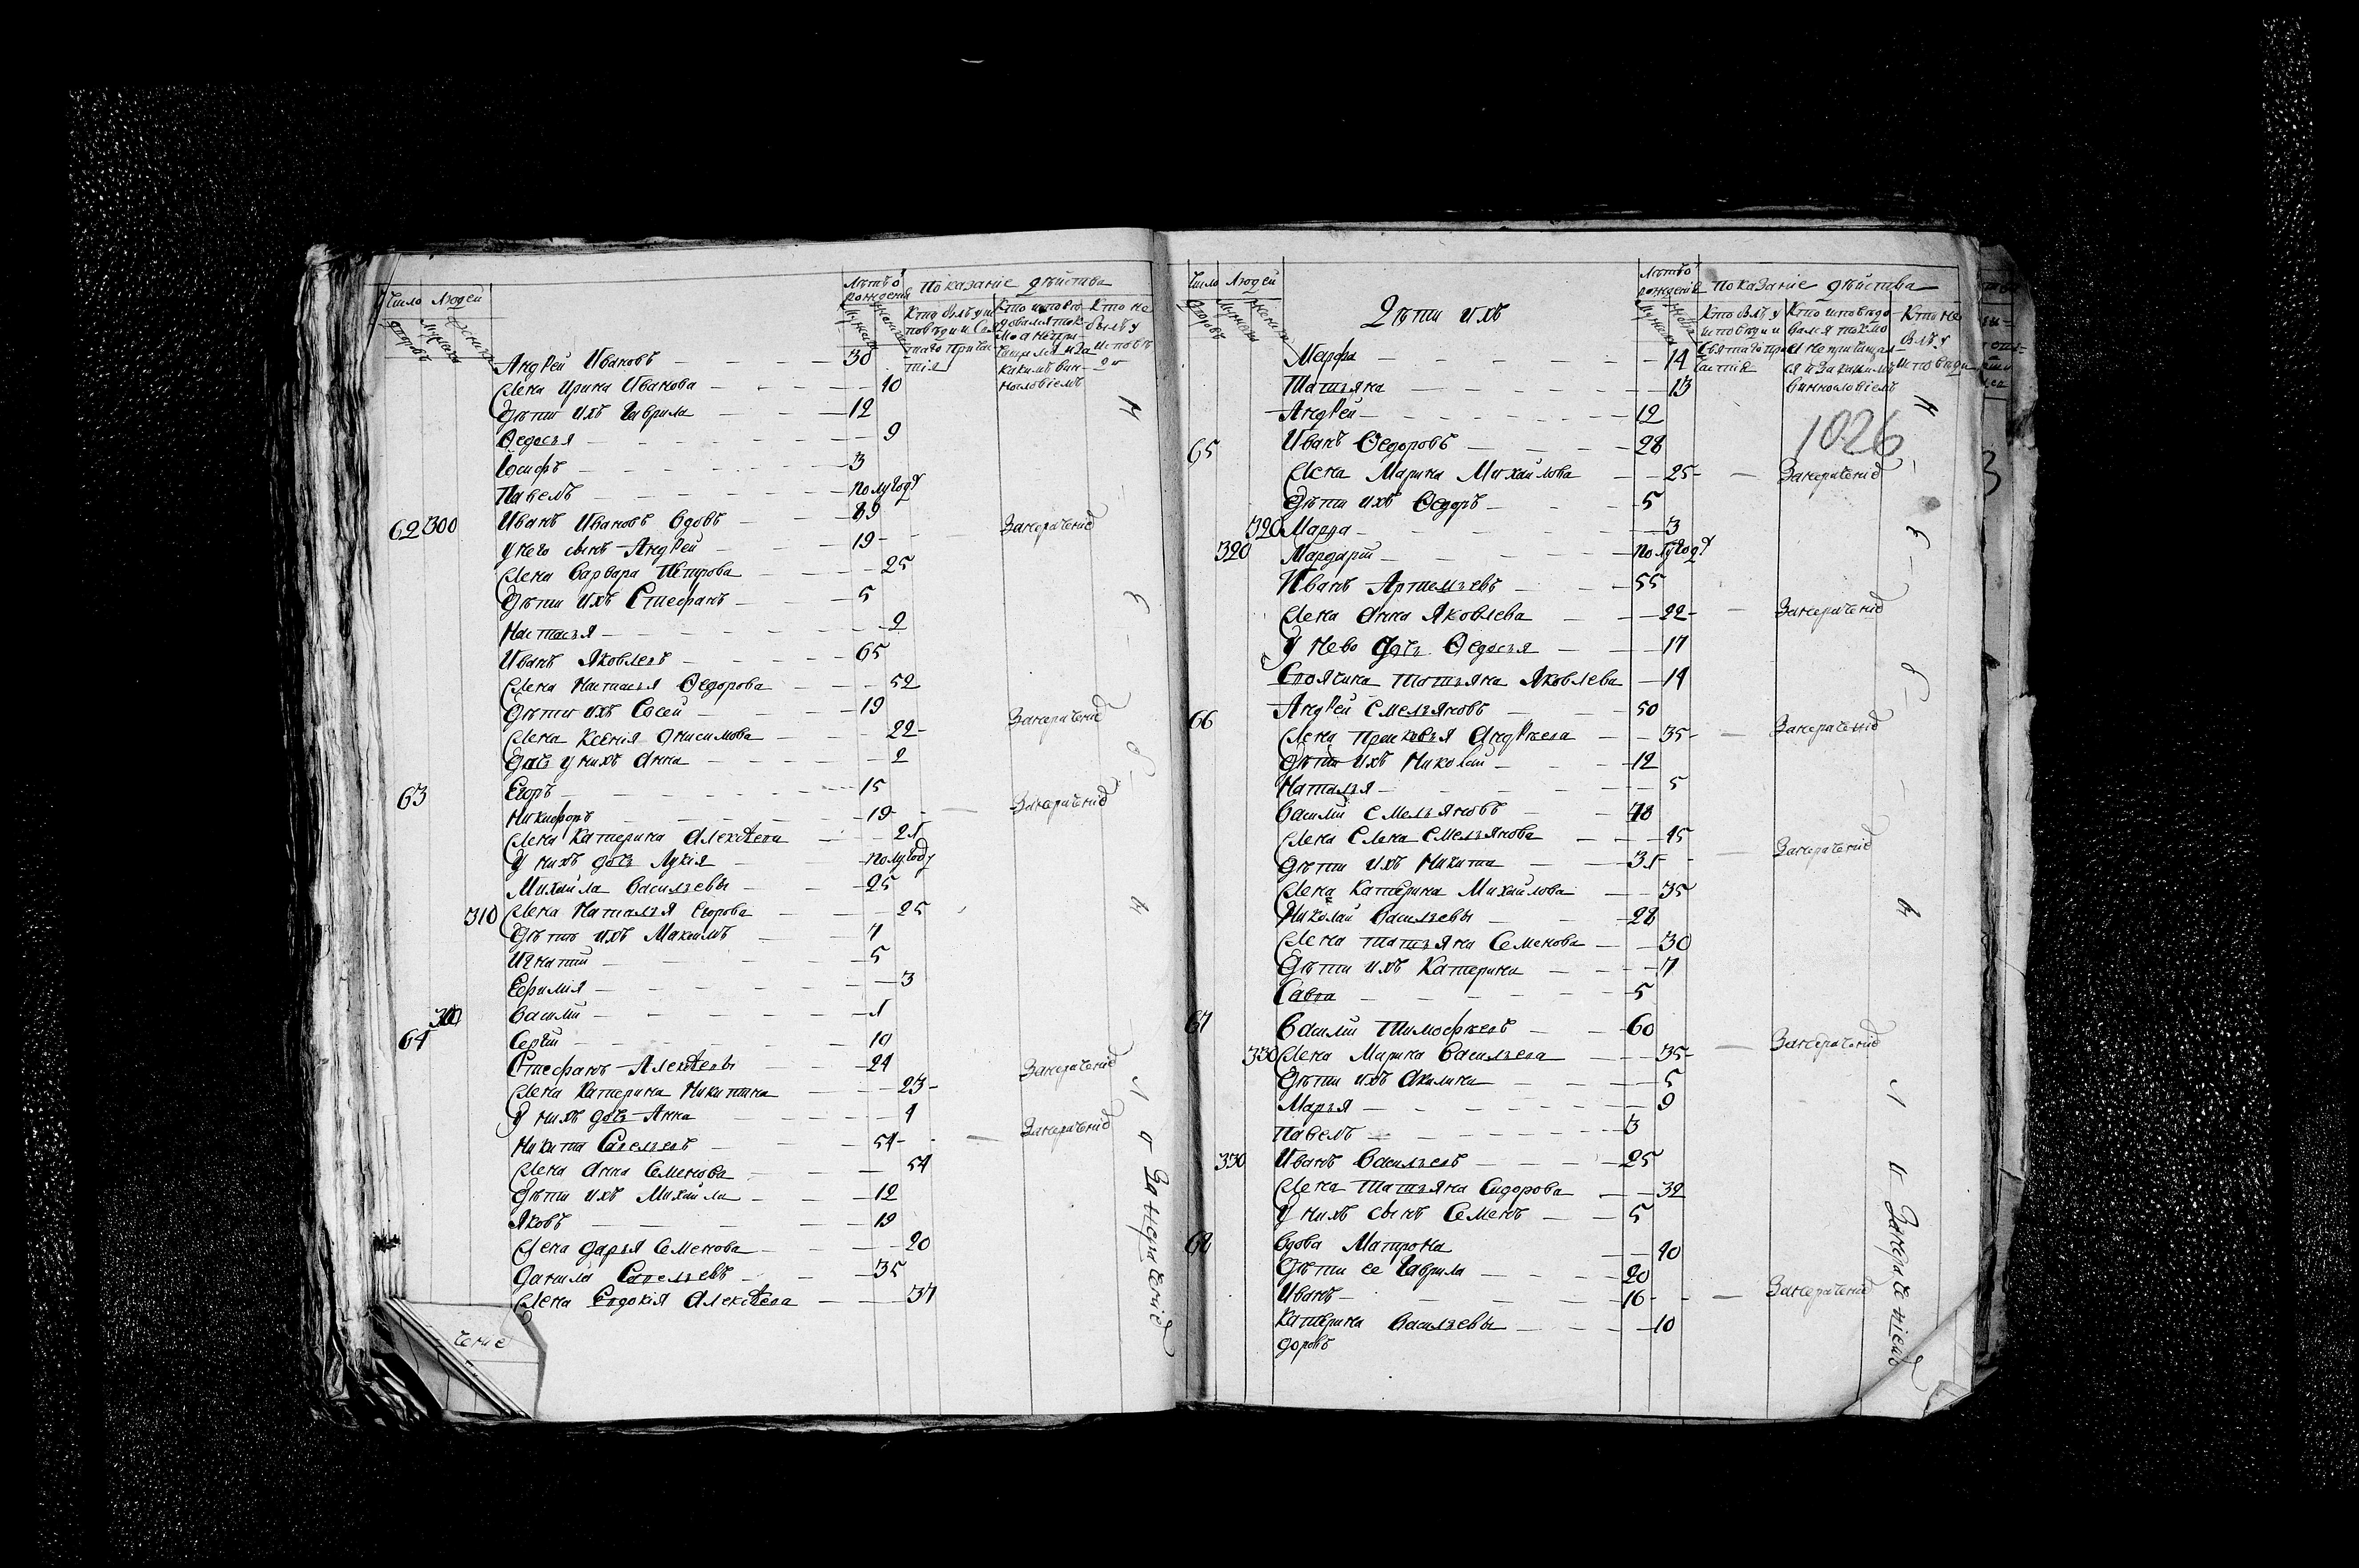 Число Людей
дворовъ
мужеска
женска
Лѣтъ ѿ рожденія
мужеска
женска
Показаніе дѣйства
Кто былъ у исповѣди и Святаго Причастія
Кто исповѣдовался токмо а непричащался и за какимъ виннословіемъ
Кто не былъ у исповѣди
Андрей Ивановъ 30
Жена Ирина Иванова 40
Дѣти ихъ Гаврила 12
Ѳедосья 9
Іосифъ 3
Павелъ полугоду
62 300 Иванъ Ивановъ вдовъ 89
У него сынъ Андрей 19 Занераченіе
Жена Варвара Петрова 25
Дѣти ихъ Стефанъ 5
Настасья 2
Иванъ Яковлевъ 65
Жена Настасья Ѳедорова 52
Дѣти ихъ Сосей 19
Жена Ксенія Онисимова 22 Занераченіе
Дочь у нихъ Анна 2
63 Егоръ 15
Никифоръ 19 Занераченіе
Жена Катерина Алексѣева 21
У нихъ дочь Лукія полугоду
Михайла Васильевы 25
310 Жена Наталья Егорова 25
Дѣти ихъ Максимъ 7
Игнатій 5
Ефимия 3
310 Василій 1
64 Сергій 10
Стефанъ Алексѣевы 24
Жена Катерина Никитина 23 Занераченіе
У нихъ дочь Анна 4
Никита Савельевъ 54 Занераченіе
Жена Анна Семенова 54
Дѣти ихъ Михайла 12
Яковъ 19
Жена Дарья Семенова 20
Данила Савельевъ 35
Жена Евдокія Алексѣева 37
ченіе
Занераченіе
Число Людей
дворовъ
мужеска
женска
Дѣти ихъ
Лѣтъ ѿ рожденія
мужеска
женска
Показаніе дѣйства
Кто былъ у исповѣди и Святаго Причастія
Кто исповѣдовался токмо а непричащался и За какимъ виннословіемъ
Кто не былъ у исповѣди
Марфа 14
Татьяна 13
Андрей 12
1026
65 Иванъ Ѳедоровъ 28
Жена Марина Михайлова 25 Занераченіе
Дѣти ихъ Ѳедоръ 5
320 Марфа 3
320 Мардарій полугоду
Иванъ Артемьевъ 55
Жена Анна Яковлева 22 Занераченіе
У нево дочь Ѳедосья 17
Своячина Татьяна Яковлева 14
66 Андрей Емельяновъ 50
Жена Прасковья Андрѣева 35 Занераченіе
Дѣти ихъ Николай 12
Наталья 5
Василій Емельяновъ 48
Жена Елена Емельянова 45
Дѣти ихъ Никита 31 Занераченіе
Жена Катерина Михайлова 35
Николай Васильевы 28
Жена Татьяна Семенова 30
Дѣти ихъ Катерина 7
Савва 5
67 Василій Тимофѣевъ 60
330 Жена Марина Васильева 35 Занераченіе
Дѣти ихъ Акилина 5
Марья 9
Павелъ 3
330 Иванъ Васильевъ 25
Жена Татьяна Сидорова 32
У нихъ сынъ Семенъ 5
68 Вдова Матрона 40
Дѣти ее Гаврила 20
Иванъ 16 Занераченіе
Катерина Васильевы 10
доровъ
Занераченіемъ